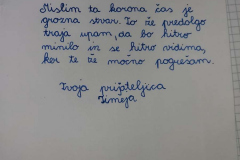 Mislim ta korona čas je
grozna stvar. To že predolgo
traja upam, da bo hitro
minilo in se hitro vidima,
ker te že močno pogrešam.
Tvoja prijateljica
Timeja